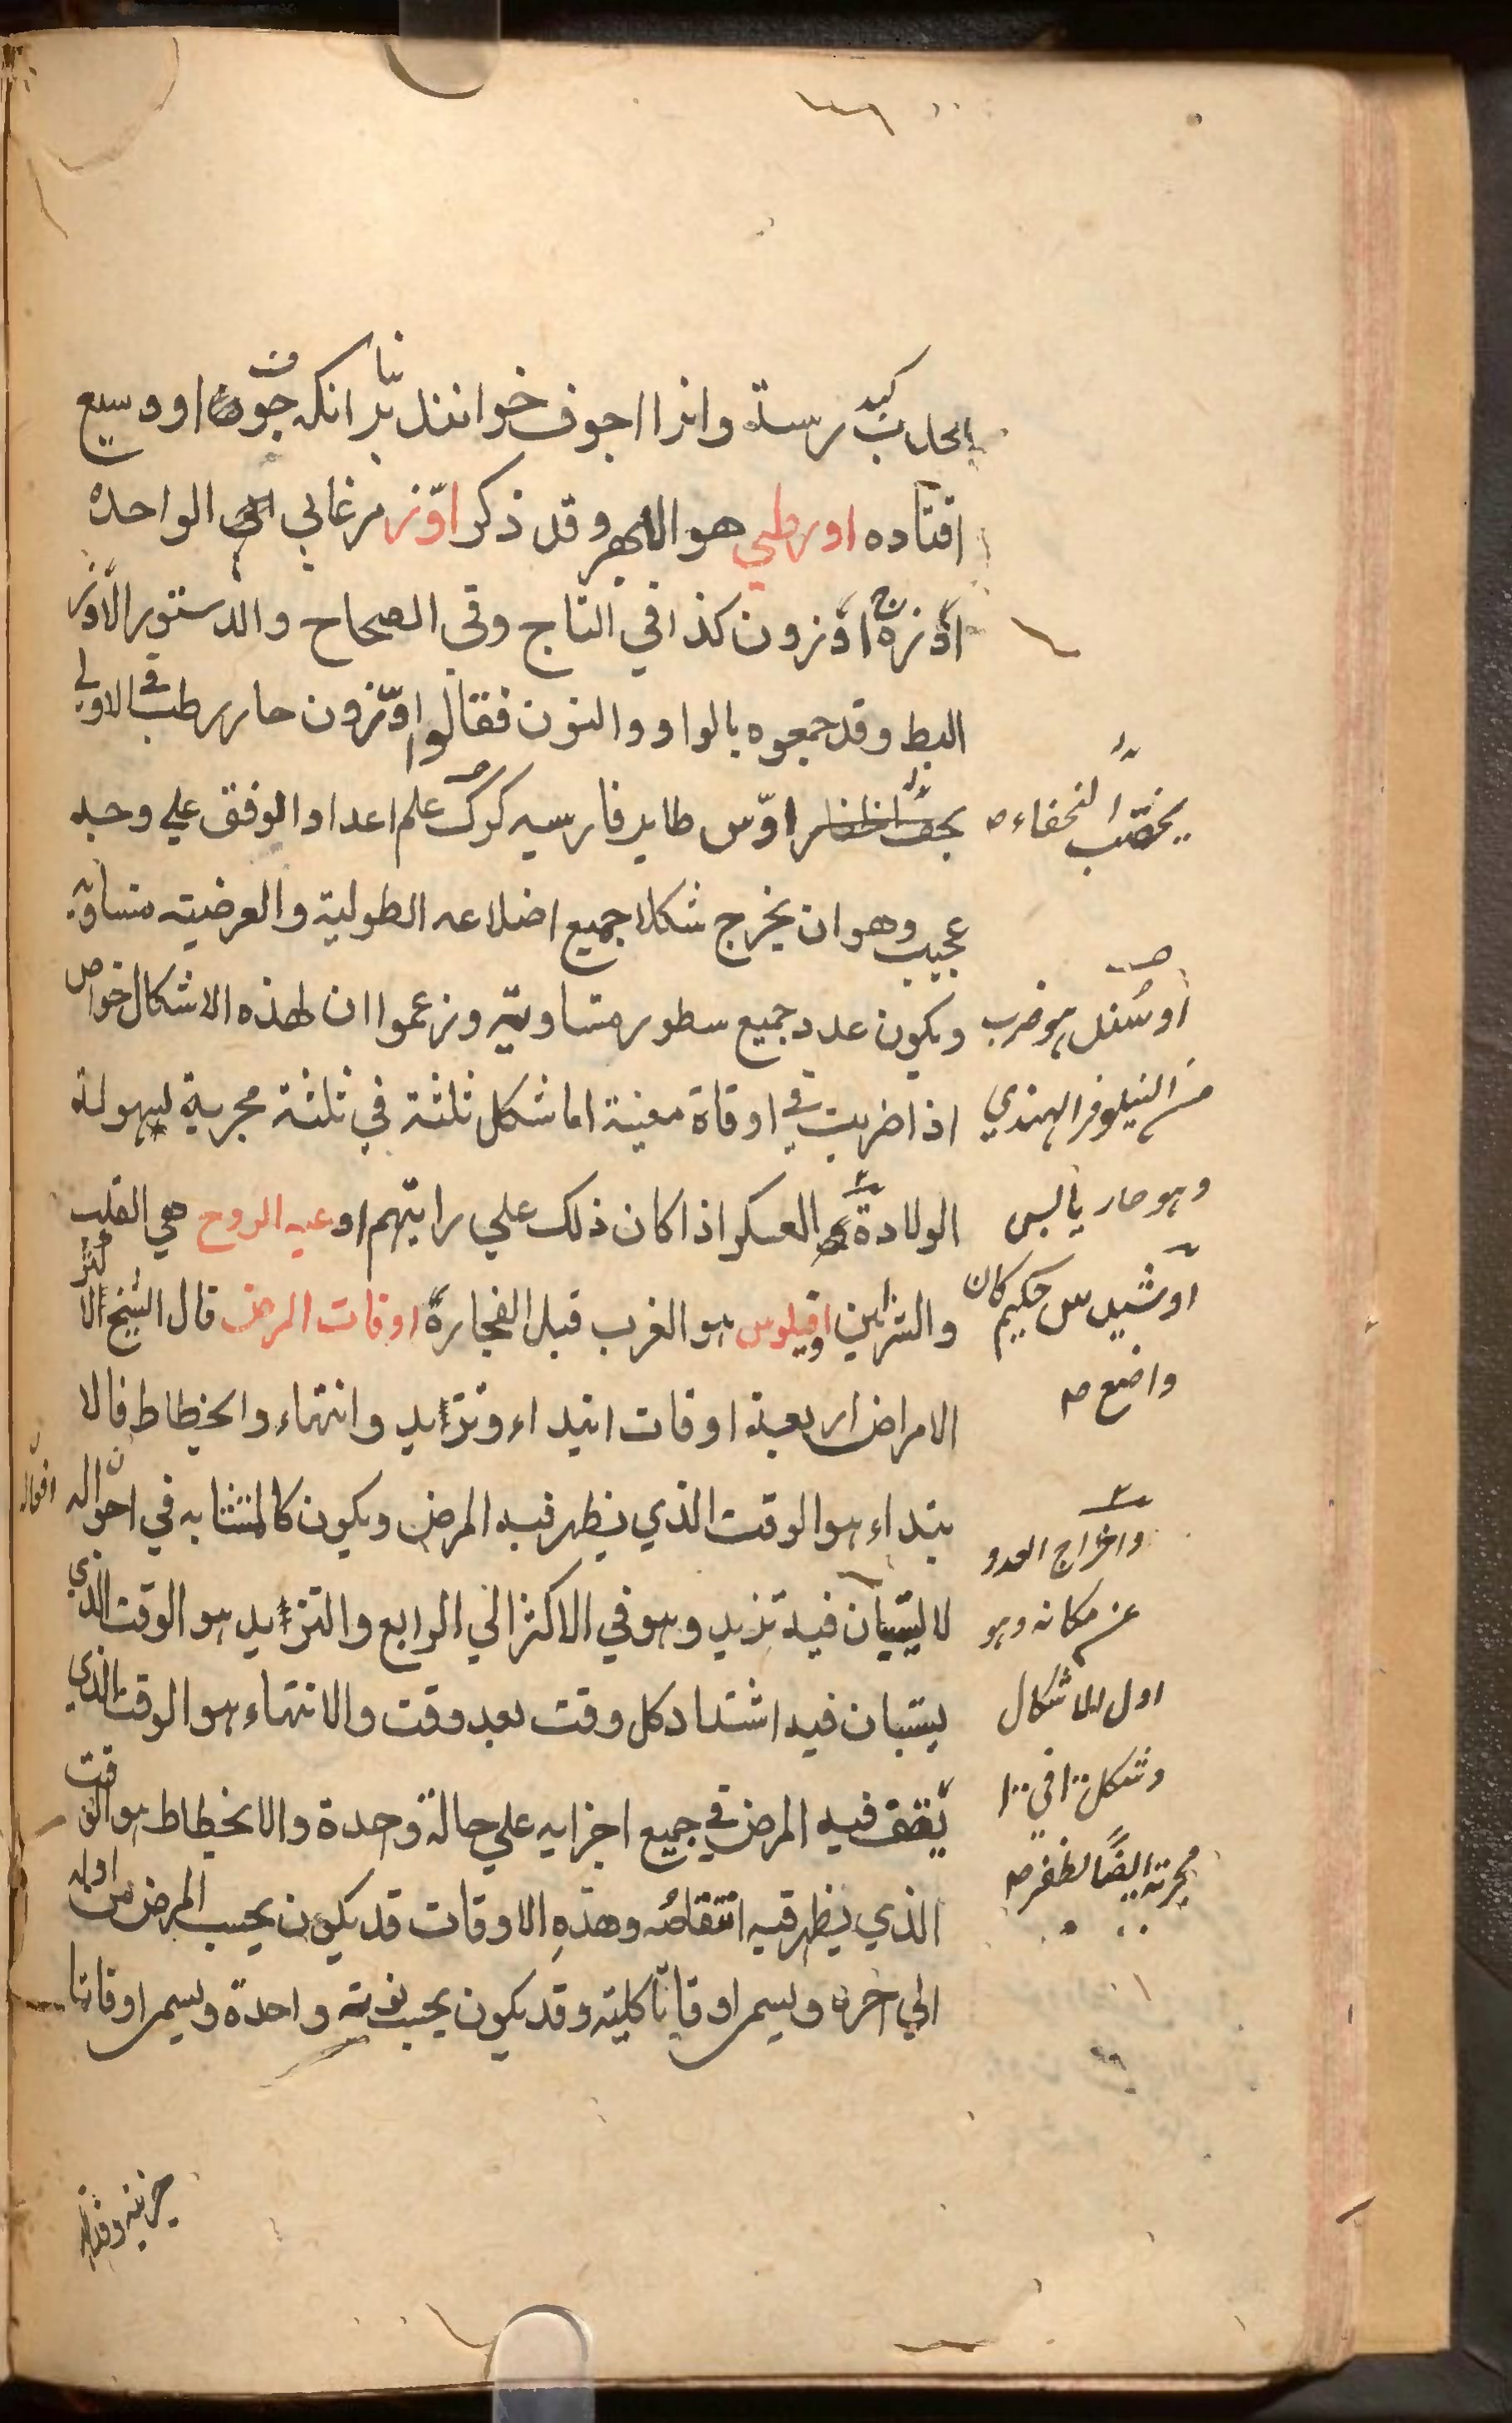 بحدب كبد رسته وانرا اجوف خوانند بنا بر انكه جوف او وسيع
افتاده اورطي هو الابهر وقد ذكر اوّز مرغابي الواحده
اوّزة ج اوّزون كذا في التاج وفي الصحاح والدستور الاوز
البط وقد جمعوه بالواو والنون فقالوا اوّزون حار رطب في الاولي
اوّس طاير فارسيه كرك علم اعداد الوفق علي وجه
عجيب وهو ان يخرج شكلا جميع اضلاعه الطولية والعرضيته متساوية
ويكون عدد جميع سطوره متساوية وزعموا ان لهذه الاشكال خواص
اذا ضربت في اوقاة معينة اما شكل ثلثة في ثلثة مجربة لسهولة
الولادة العسكر اذا كان ذلك علي راياتهم اوعيه الروح هي القلب
والشرايين اوقيلوس هو الغرب قبل انفجاره اوقات المرض قال الشيخ لاكثر
الامراض اربعة اوقات ابتداء وتزءيد وانتهاء وانحطاط فالا
بتداء هو الوقت الذي يظهر فيه المرض ويكون كالمتشابه في احواله
لا يستبان فيه تزيد وهو في الاكثر الي الرابع والتزءيد هو الوقت الذي
يستبان فيه اشتداد كل وقت بعد وقت والانتهاء هو الوقت الذي
يقف فيه المرض في جميع اجزايه علي حالة وحدة والانحطاط هو الوقت
الذي يظهر فيه انتقاصه وهذه الاوقات قد يكون بحسب المرض من اوله
الي اخره ويسمى اوقاتا كلية وقد يكون بحسب نوبة واحدة ويسمى اوقاتا
اوسفل هو ضرب
من النيلوفر الهندي
وهو حار يابس
حكيم كان
واضع صه
واخراج العدو
عن مكانه وهو
اول الاشكال
وشكل ١٠٠ في ١٠٠
مجربة ايضًا لظفر صه